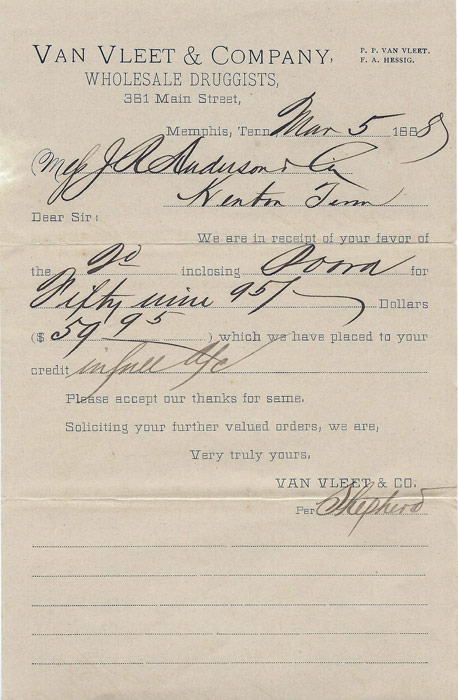 VAN VLEET & COMPANY,
P. P. VAN VLEET.
F. A. HESSIG.
WHOLESALE DRUGGISTS,
381 Main Street,
Memphis, Tenn Mar 5 1888
Mess J A Anderson & Co
Kenton Tenn
Dear Sir:
We are in receipt of your favor of
the 2d inclosing for
Fifty nine 95/ Dollars
($ 59 95 ) which we have placed to your
credit in full a/c
Please accept our thanks for same.
Soliciting your further valued orders, we are,
Very truly yours,
VAN VLEET & CO.
Per Shepherd